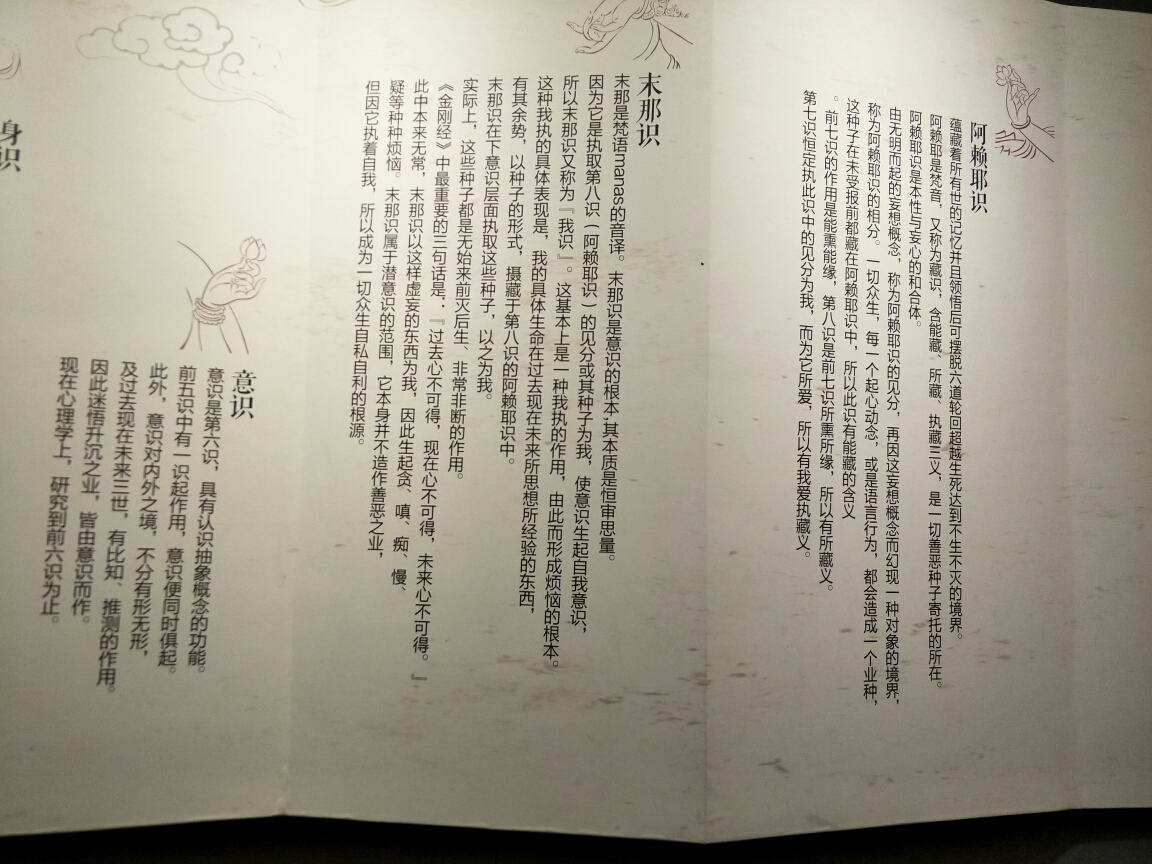 阿赖耶识
蕴藏着所有世的记忆并且领悟后可摆脱六道轮回超越生死达到不生不灭的境界。
阿赖耶是梵音，又称为藏识，含能藏、所藏、执藏三义，是一切善恶种子寄托的所在。
阿赖耶识是本性与妄心的和合体。
由无明而起的妄想概念，称为阿赖耶识的见分，再因这妄想概念而幻现一种对象的境界，
称为阿赖耶识的相分。一切众生，每一个起心动念，或是语言行为，都会造成一个业种，
这种子在未受报前都藏在阿赖耶识中，所以此识有能藏的含义
。前七识的作用是能熏能缘，第八识是前七识所熏所缘，所以有所藏义。
第七识恒定执此识中的见分为我，而为它所爱，所以有我爱执藏义。
末那识
末那是梵语manas的音译。末那识是意识的根本,其本质是恒审思量。
因为它是执取第八识（阿赖耶识）的见分或其种子为我，使意识生起自我意识，
所以末那识又称为『我识』。这基本上是一种我执的作用，由此而形成烦恼的根本。
这种我执的具体表现是，我的具体生命在过去现在未来所思想所经验的东西，
有其余势，以种子的形式，摄藏于第八识的阿赖耶识中。
末那识在下意识层面执取这些种子，以之为我。
实际上，这些种子都是无始来前灭后生、非常非断的作用。
《金刚经》中最重要的三句话是：『过去心不可得，现在心不可得，未来心不可得。』
此中本来无常，末那识以这样虚妄的东西为我，因此生起贪、嗔、痴、慢、
疑等种种烦恼。末那识属于潜意识的范围，它本身并不造作善恶之业，
但因它执着自我，所以成为一切众生自私自利的根源。
意识
意识是第六识，具有认识抽象概念的功能。
前五识中有一识起作用，意识便同时俱起。
此外，意识对内外之境，不分有形无形，
及过去现在未来三世，有比知、推测的作用。
因此迷悟升沉之业，皆由意识而作。
现在心理学上，研究到前六识为止。
身识